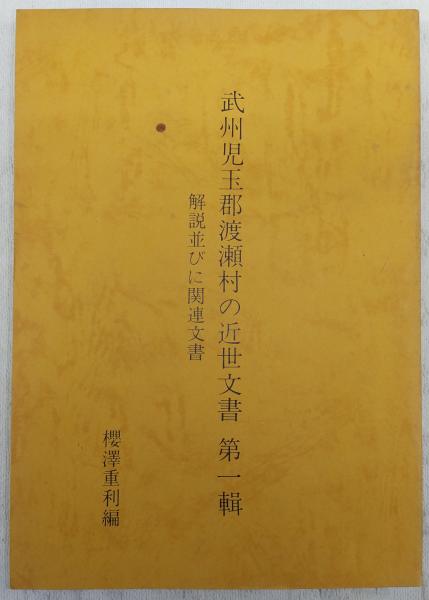 武州児玉郡渡瀬村の近世文書 第一輯
解説並びに関連文書
櫻澤重利編